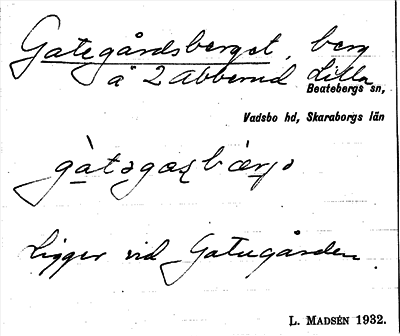 Gategårdsberget, berg
å 2 Abberud Lilla
Beatebergs sn,
Vadsbo hd, Skaraborgs län
Ligger vid Gategården.
L. MADSÉN 1932.